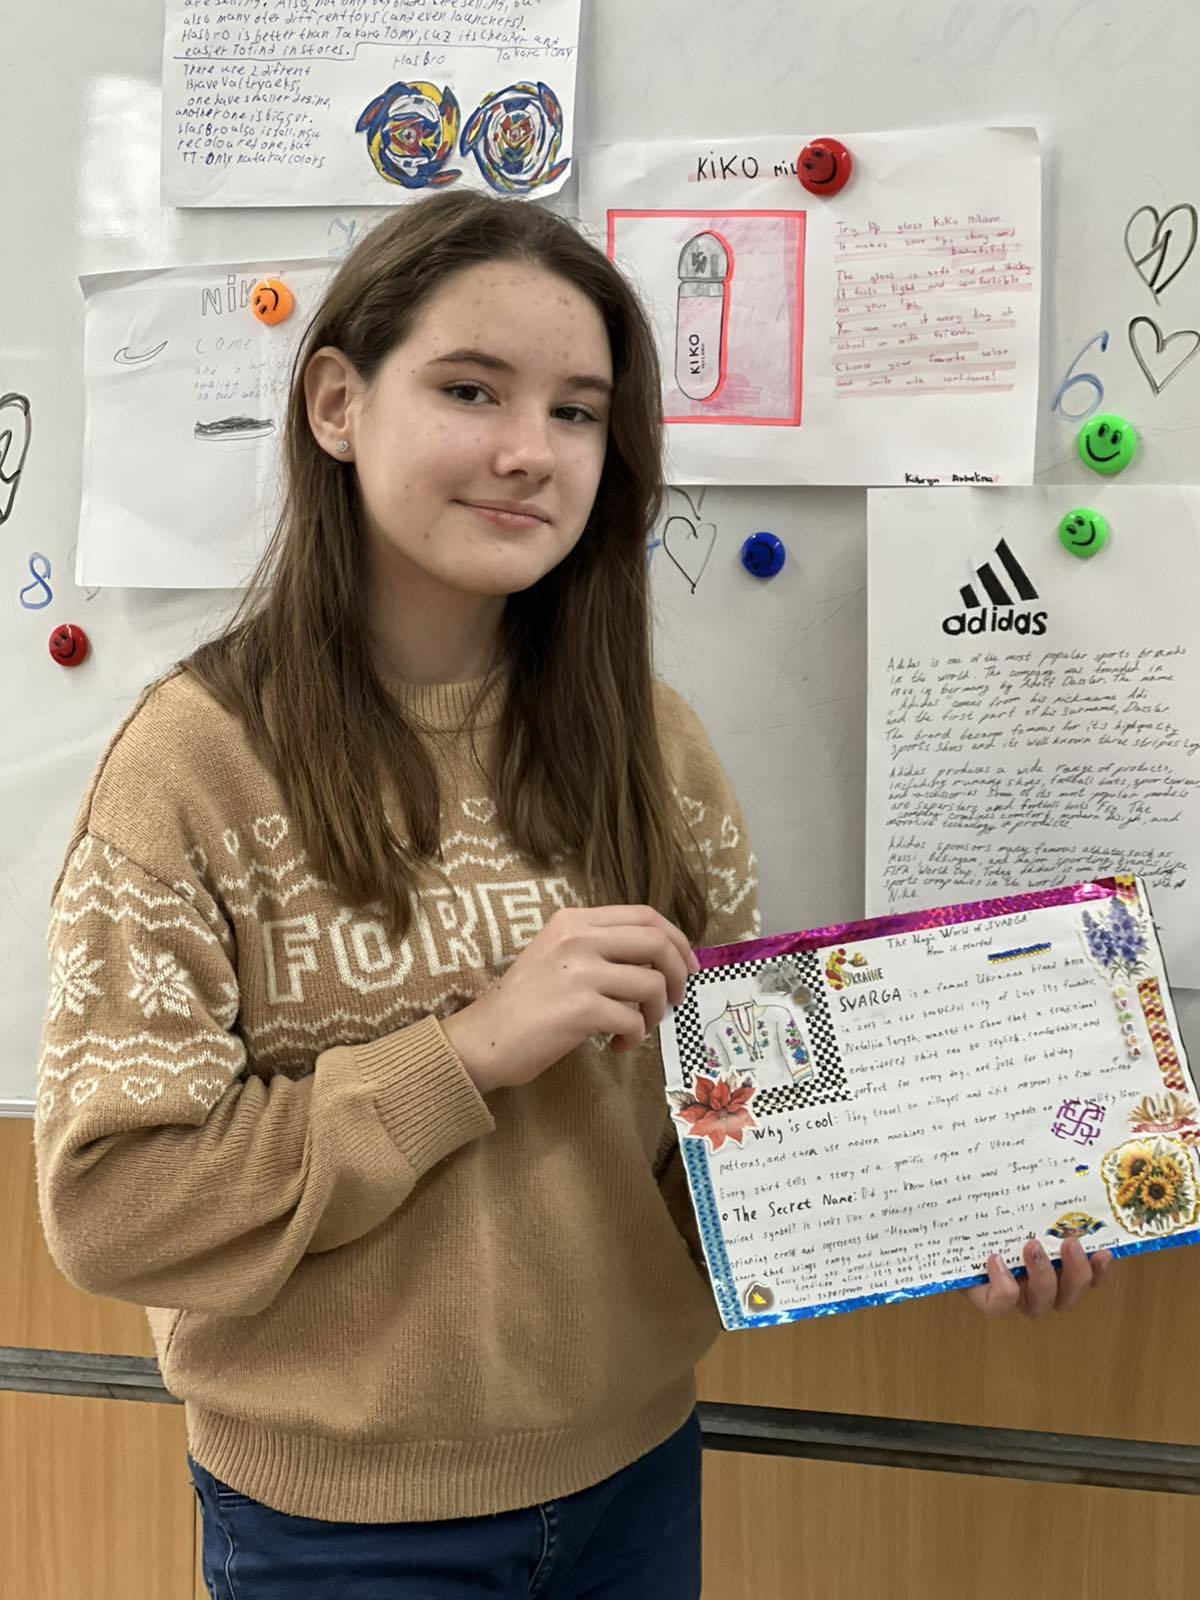 are selling. Also, not only beyblades were selling, but
also many oter diffrent toys (and even launchers).
Hasbro is better than Takara Tomy, cuz its cheaper and
easier to find in stores.
HasBro
Takara Tomy
There are 2 diffrent
Brave Valtryeks,
one have smaller desine,
another one is bigger.
HasBro also is selling a
recoloured one, but
TT-Only natural colors
KIKO MIL
KIKO
MILANO
Try lip gloss KIKO Milano.
It makes your lips shiny and
beautiful.
The gloss is soft and not sticky.
It feels light and comfortable
on your lips.
You can use it every day at
school or with friends.
Choose your favorite color
and smile with confidence!
NIK
COME
6
8
adidas
Adidas is one of the most popular sports brands
in the world. The company was founded in
in Germany by Adolf Dassler. The name
"Adidas" comes from his nickname Adi
and the first part of his surname, Dassler
The brand became famous for its high quality
sports shoes and its well known three stripes
Adidas produces a wide range of products,
including running shoes, football boots, sportswear
and accessories Some of its most popular models
are superstars and football boots The
company combines comfort, modern design, and
technology in products.
Adidas sponsors many famous athletes such as
Messi, and major sporting events like
FIFA World Cup. Today Adidas is one of the leading
sports companies in the world with
Nike
FORE
The Magic World of SVARGA
How it started
UKRAINE
SVARGA is a famous Ukrainian brand born
in 2013 in the beautiful city of Lviv Its founder,
Nataliia wanted to show that a traditional
embroidered shirt can be stylish, comfortable, and
perfect for every day, not just for holiday
SVARGA
Why is cool: They travel to villages and visit museums to find ancient
patterns, and then use modern machines to put these symbols on quality linen
Every shirt tells a story of a specific region of Ukraine
The Secret Name: Did you know that the word "Svarga" is an
ancient symbol? It looks like a spinning cross and represents the like a
spinning cross and represents the "Heavenly Fire" or the Sun, it's a powerful
charm that brings energy and harmony to the person who wears it
Every time you wear their shirt, you keep a old
tradition alive. It is not just fashion; it is
cultural superpower that tells the world: We are